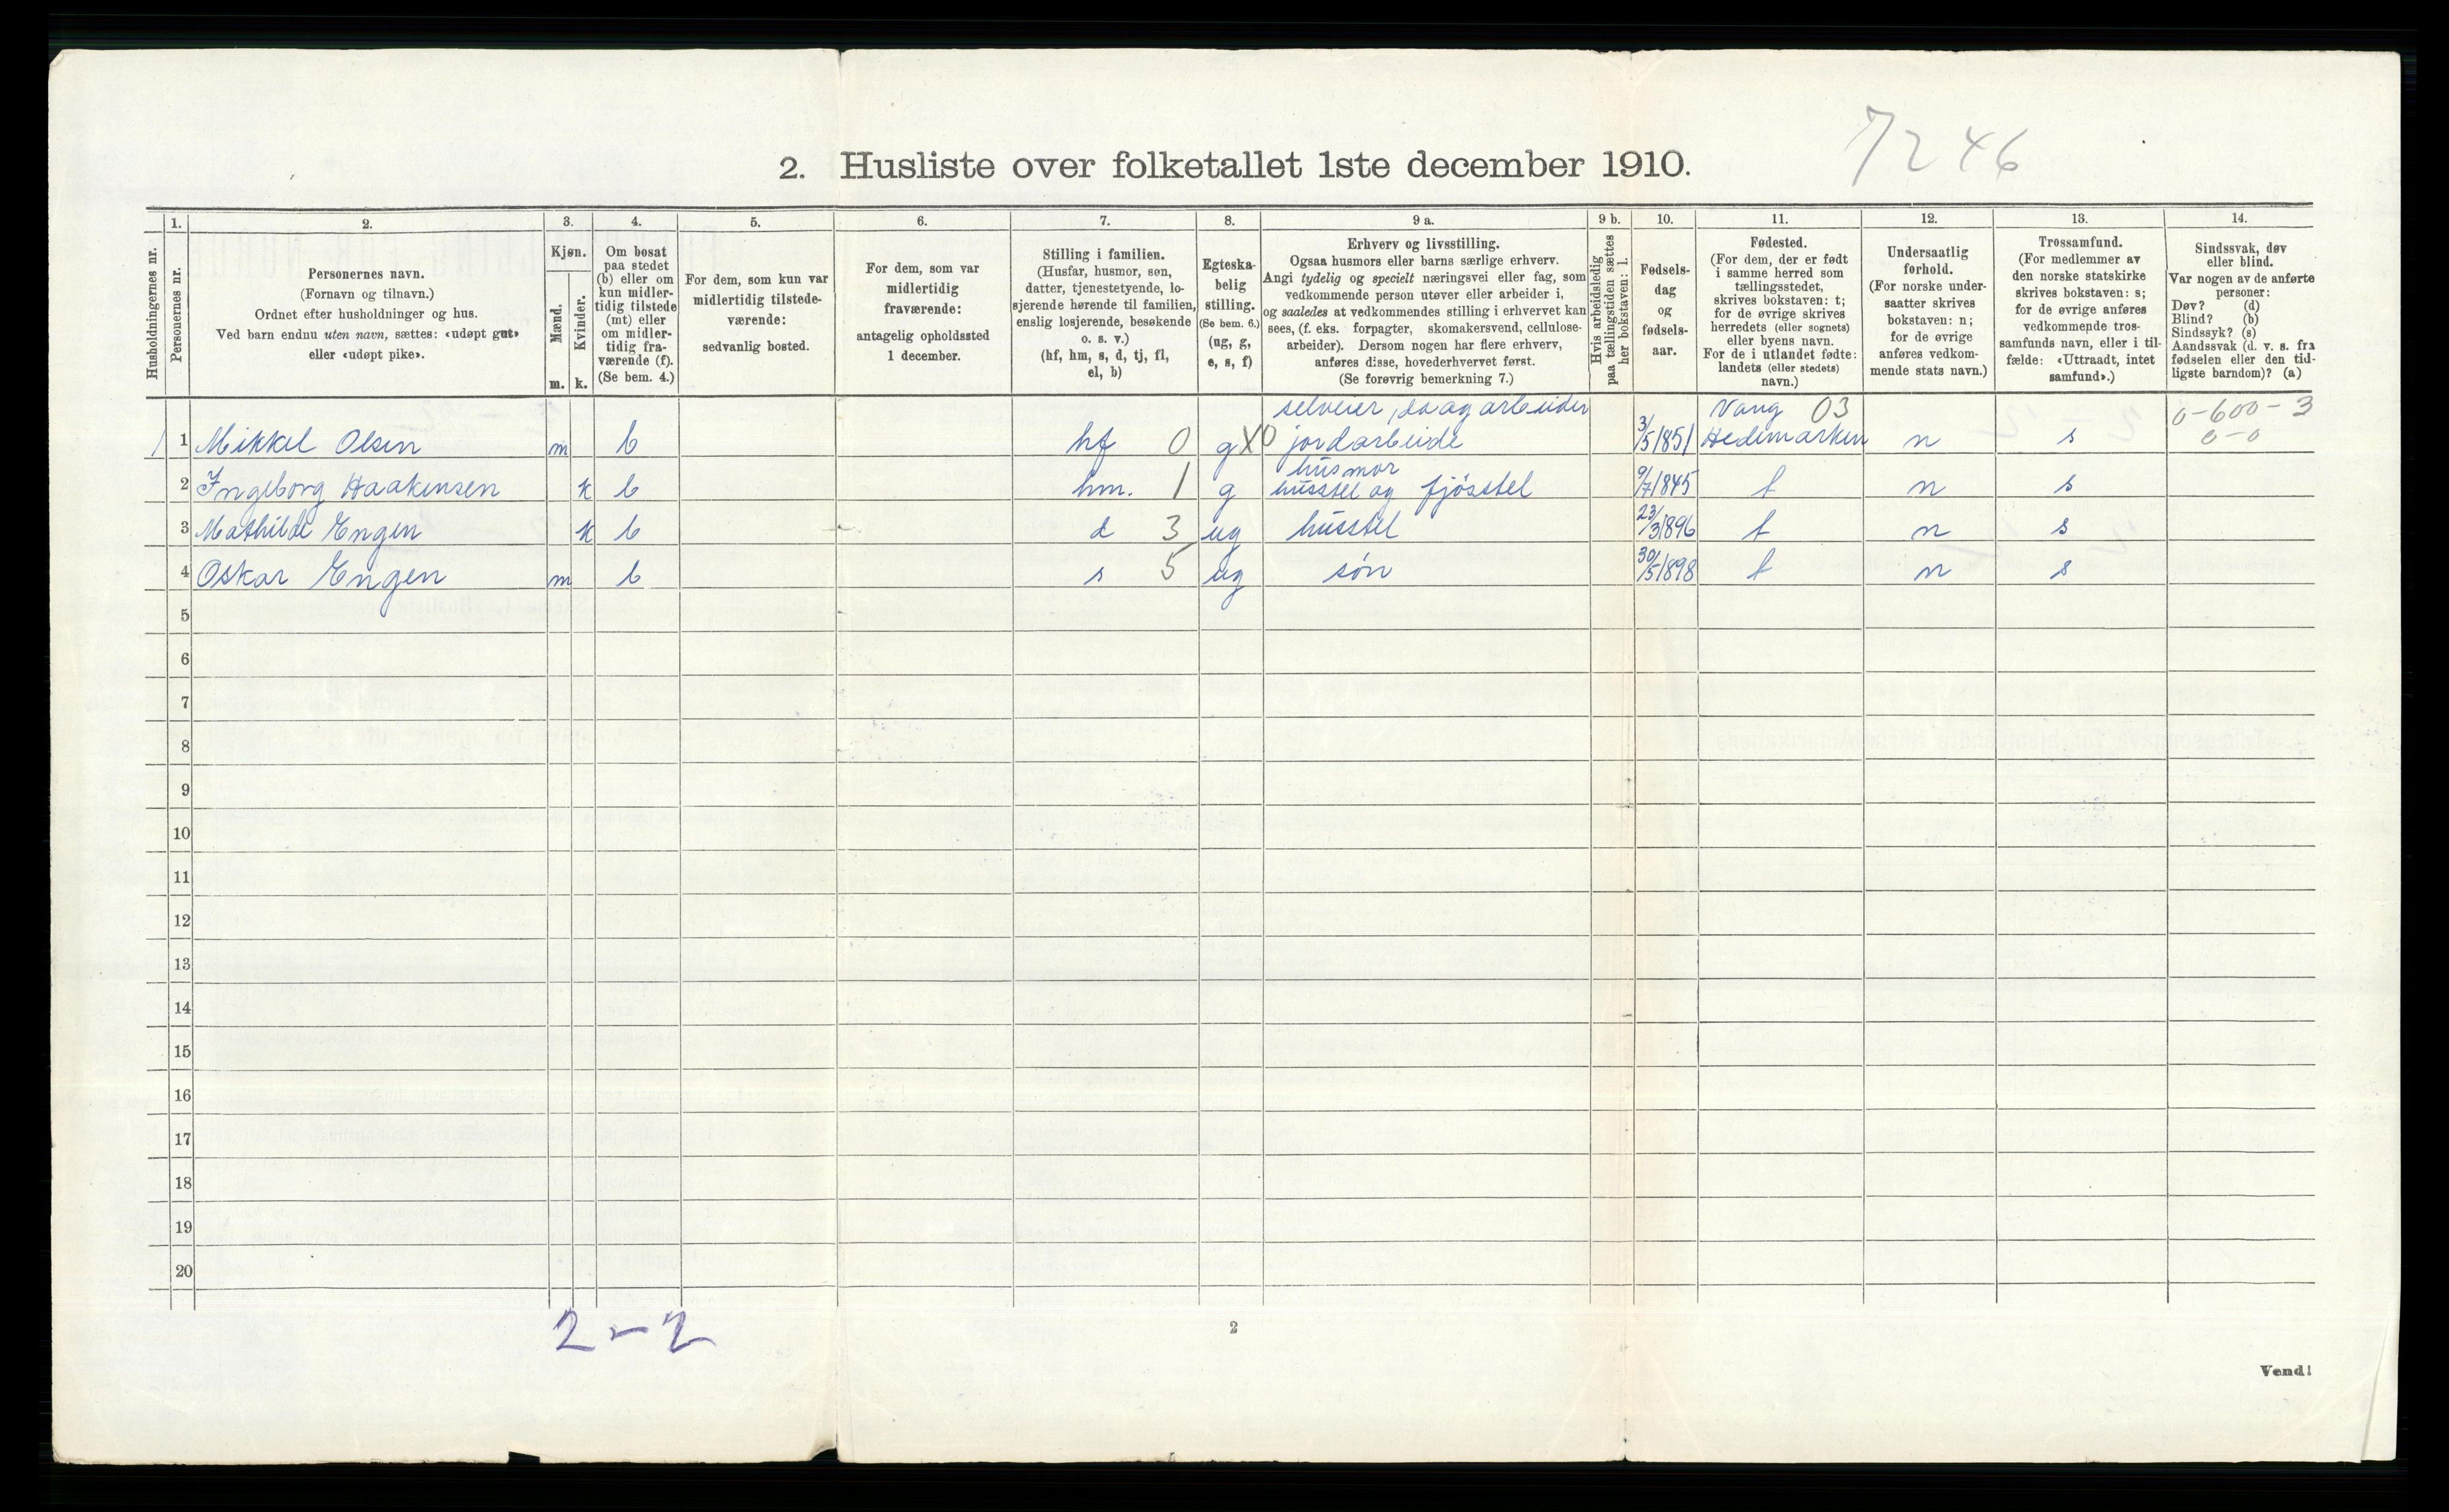 7246
2. Husliste over folketallet 1ste december 1910.
Husholdningernes nr.
1.
Personernes nr.
2.
Personernes navn.
(Fornavn og tilnavn.)
Ordnet efter husholdninger og hus.
Ved barn endnu uten navn, sættes: «udøpt gut»
eller «udøpt pike».
3.
Kjøn.
Mænd.
Kvinder.
m. k.
4.
Om bosat
paa stedet
(b) eller om
kun midler-
tidig tilstede
(mt) eller
om midler-
tidig fra-
værende (f).
(Se bem. 4.)
5.
For dem, som kun var
midlertidig tilstede-
værende:
sedvanlig bosted.
6.
For dem, som var
midlertidig
fraværende:
antagelig opholdssted
1 december.
7.
Stilling i familien.
(Husfar, husmor, søn,
datter, tjenestetyende, lo-
sjerende hørende til familien,
enslig losjerende, besøkende
o. s. v.)
(hf, hm, s, d, tj, fl,
el, b)
8.
Egteska-
belig
stilling.
(Se bem. 6.)
(ug, g,
e, s, f)
9 a.
Erhverv og livsstilling.
Ogsaa husmors eller barns særlige erhverv.
Angi tydelig og specielt næringsvei eller fag, som
vedkommende person utøver eller arbeider i,
og saaledes at vedkommendes stilling i erhvervet kan
sees, (f. eks. forpagter, skomakersvend, cellulose-
arbeider). Dersom nogen har flere erhverv,
anføres disse, hovederhvervet først.
(Se forøvrig bemerkning 7.)
9 b.
Hvis arbeidsledig
paa tællingstiden sættes
her bokstaven: l.
10.
Fødsels-
dag
og
fødsels-
aar.
11.
Fødested.
(For dem, der er født
i samme herred som
tællingsstedet,
skrives bokstaven: t;
for de øvrige skrives
herredets (eller sognets)
eller byens navn.
For de i utlandet fødte:
landets (eller stedets)
navn.)
12.
Undersaatlig
forhold.
(For norske under-
saatter skrives
bokstaven: n;
for de øvrige
anføres vedkom-
mende stats navn.)
13.
Trossamfund.
(For medlemmer av
den norske statskirke
skrives bokstaven: s;
for de øvrige anføres
vedkommende tros-
samfunds navn, eller i til-
fælde: «Uttraadt, intet
samfund».)
14.
Sindssvak, døv
eller blind.
Var nogen av de anførte
personer:
Døv? (d)
Blind? (b)
Sindssyk? (s)
Aandssvak (d. v. s. fra
fødselen eller den tid-
ligste barndom)? (a)
selveier, dagarbeider Vang 03 0-600-3
1 1 Mikkel Olsen m b hf 0 g X0 jordarbeide 3/5 1851 Hedemarken n s 0-0
husmor
2 Ingeborg Haakensen k b hm. 1 g husstel og fjösstel 9/7 1845 t n s
3 Mathilde Engen k b d 3 ug husstel 23/3 1896 t n s
4 Oskar Engen m b s 5 ug søn 30/5 1898 t n s
5
6
7
8
9
10
11
12
13
14
15
16
17
18
19
20
2-2
2
Vend!